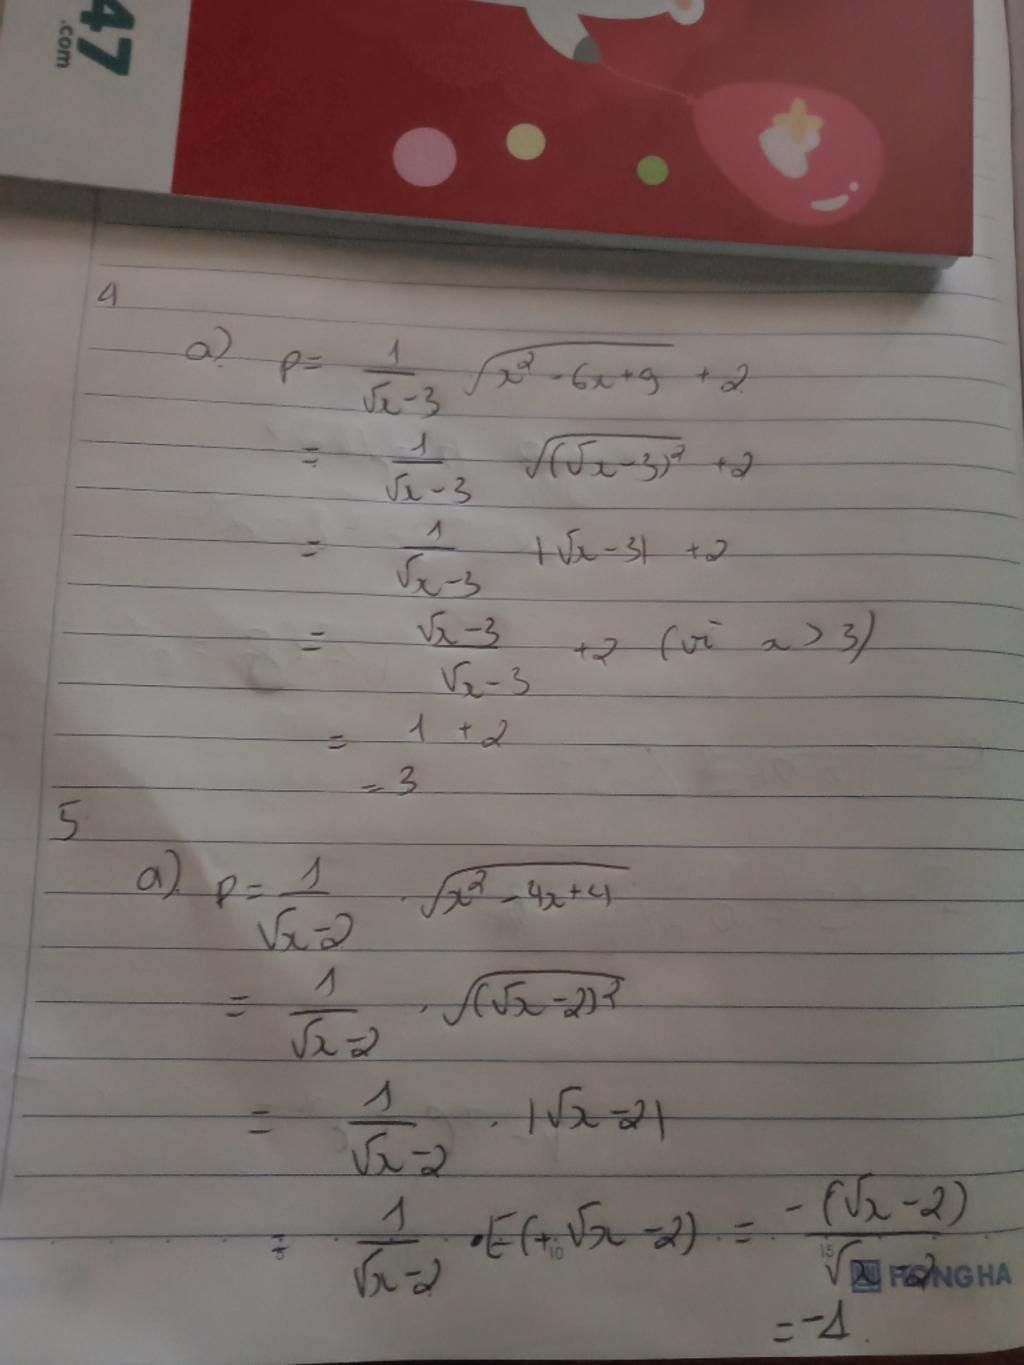 47
.com
4
a) P = 1/(√x-3) √(x²-6x+9) + 2
= 1/(√x-3) √((√x-3)²) +2
= 1/(√x-3) |√x-3| +2
= (√x-3)/(√x-3) +2 (vì x > 3)
= 1 + 2
= 3
5
a) P = 1/(√x-2) . √(x²-4x+4)
= 1/(√x-2) . √((√x-2)²)
= 1/(√x-2) . |√x-2|
= 1/(√x-2) . [-(√x-2) = -(√x-2)/(√x-2)
5 10 15 HONG HA
= -1.